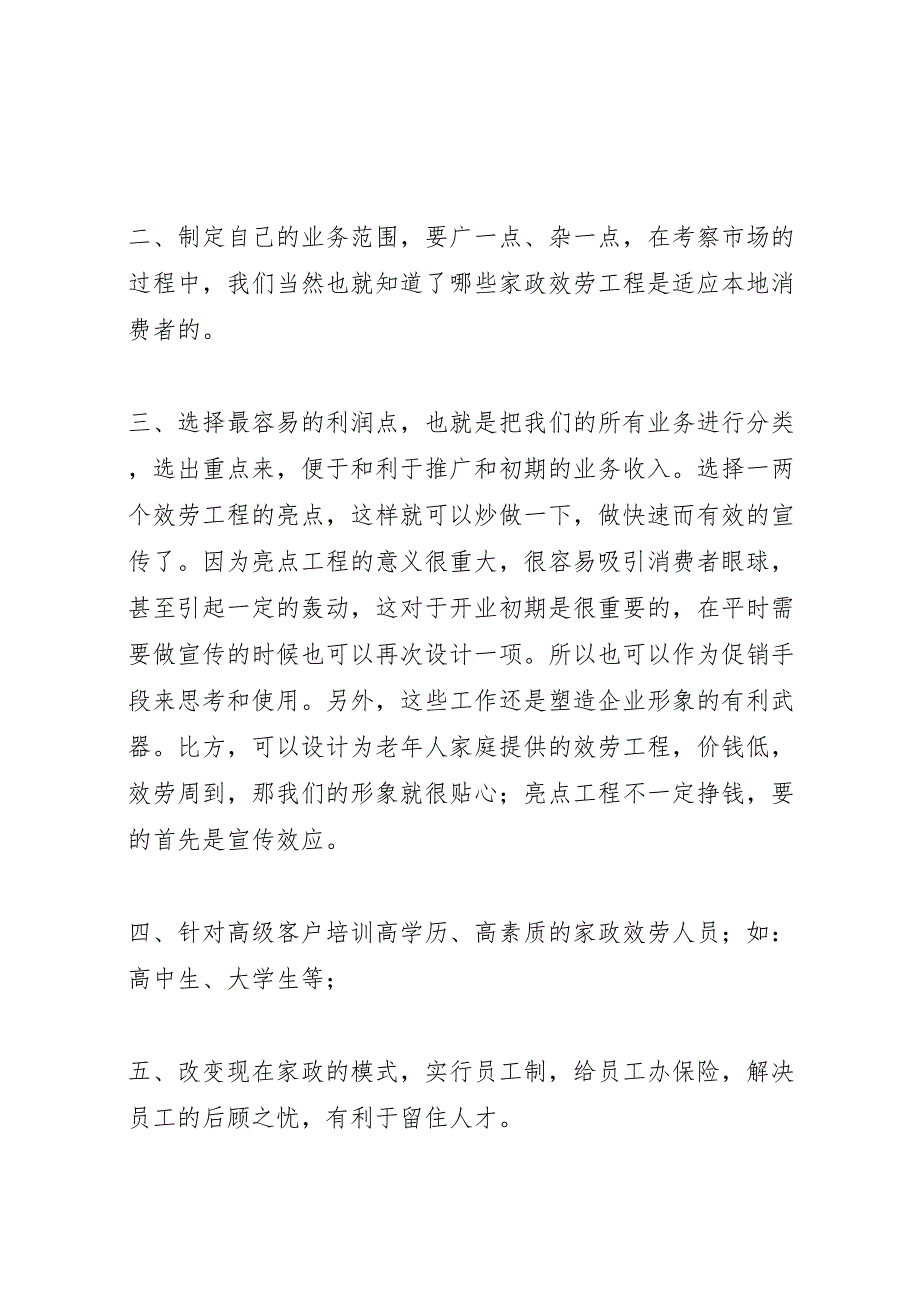 二、制定自己的业务范围，要广一点、杂一点，在考察市场的
过程中，我们当然也就知道了哪些家政效劳工程是适应本地消
费者的。
三、选择最容易的利润点，也就是把我们的所有业务进行分类
，选出重点来，便于和利于推广和初期的业务收入。选择一两
个效劳工程的亮点，这样就可以炒做一下，做快速而有效的宣
传了。因为亮点工程的意义很重大，很容易吸引消费者眼球，
甚至引起一定的轰动，这对于开业初期是很重要的，在平时需
要做宣传的时候也可以再次设计一项。所以也可以作为促销手
段来思考和使用。另外，这些工作还是塑造企业形象的有利武
器。比方，可以设计为老年人家庭提供的效劳工程，价钱低，
效劳周到，那我们的形象就很贴心；亮点工程不一定挣钱，要
的首先是宣传效应。
四、针对高级客户培训高学历、高素质的家政效劳人员；如：
高中生、大学生等；
五、改变现在家政的模式，实行员工制，给员工办保险，解决
员工的后顾之忧，有利于留住人才。